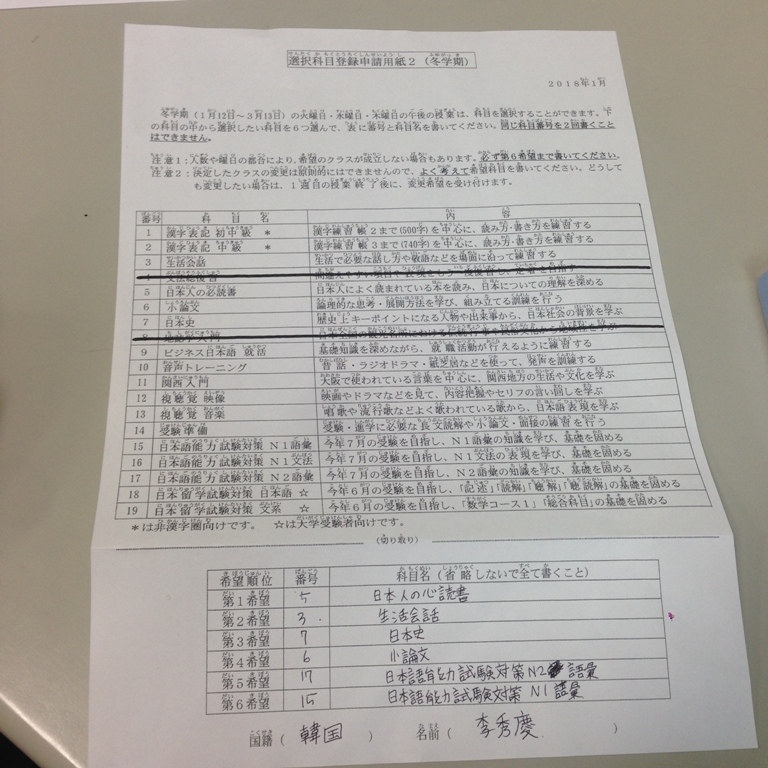 選択科目登録申請用紙2（冬学期）
2018年1月
冬学期（1月12日～3月13日）の火曜日・水曜日・木曜日の午後の授業は、科目を選択することができます。下
の科目の中から選択したい科目を6つ選んで、表に番号と科目名を書いてください。同じ科目番号を2回書くこと
はできません。
注意1：人数や曜日の都合により、希望のクラスが成立しない場合もあります。必ず第6希望まで書いてください。
注意2：決定したクラスの変更は原則的にはできませんので、よく考えて希望科目を書いてください。どうして
も変更したい場合は、1週目の授業終了後に、変更希望を受け付けます。
番号 科目名 内容
1 漢字表記 初中級 * 漢字練習帳2まで(500字)を中心に、読み方・書き方を練習する
2 漢字表記 中級 * 漢字練習帳3まで(740字)を中心に、読み方・書き方を練習する
3 生活会話 生活で必要な話し方や敬語などを場面に沿って練習する
4 文法総復習
5 日本人の必読書 日本人によく読まれている本を読み、日本についての理解を深める
6 小論文 論理的な思考・展開方法を学び、組み立てる訓練を行う
7 日本史 歴史上キーポイントになる人物や出来事から、日本社会の背景を学ぶ
8
9 ビジネス日本語 就活 基礎知識を深めながら、就職活動が行えるように練習する
10 音声トレーニング 昔話・ラジオドラマ・紙芝居などを使って、発声を訓練する
11 関西入門 大阪で使われている言葉を中心に、関西地方の生活や文化を学ぶ
12 視聴覚 映像 映画やドラマなどを見て、内容把握やセリフの言い回しを学ぶ
13 視聴覚 音楽 唱歌や流行歌などよく歌われている歌から、日本語表現を学ぶ
14 受験準備 受験・進学に必要な長文読解や小論文・面接の練習を行う
15 日本語能力試験対策 N1語彙 今年7月の受験を目指し、N1語彙の知識を学び、基礎を固める
16 日本語能力試験対策 N1文法 今年7月の受験を目指し、N1文法の表現を学び、基礎を固める
17 日本語能力試験対策 N2語彙 今年7月の受験を目指し、N2語彙の知識を学び、基礎を固める
18 日本留学試験対策 日本語 ☆ 今年6月の受験を目指し、「記述」「読解」「聴解」「聴読解」の基礎を固める
19 日本留学試験対策 文系 ☆ 今年6月の受験を目指し、「数学コース1」「総合科目」の基礎を固める
*は非漢字圏向けです。 ☆は大学受験者向けです。
(切り取り)
希望順位 番号 科目名（省略しないで全て書くこと）
第1希望 5 日本人の心読書
第2希望 3. 生活会話
第3希望 7 日本史
第4希望 6 小論文
第5希望 17 日本語能力試験対策N2語彙
第6希望 15 日本語能力試験対策N1語彙
国籍（ 韓国 ） 名前（ 李秀慶 ）